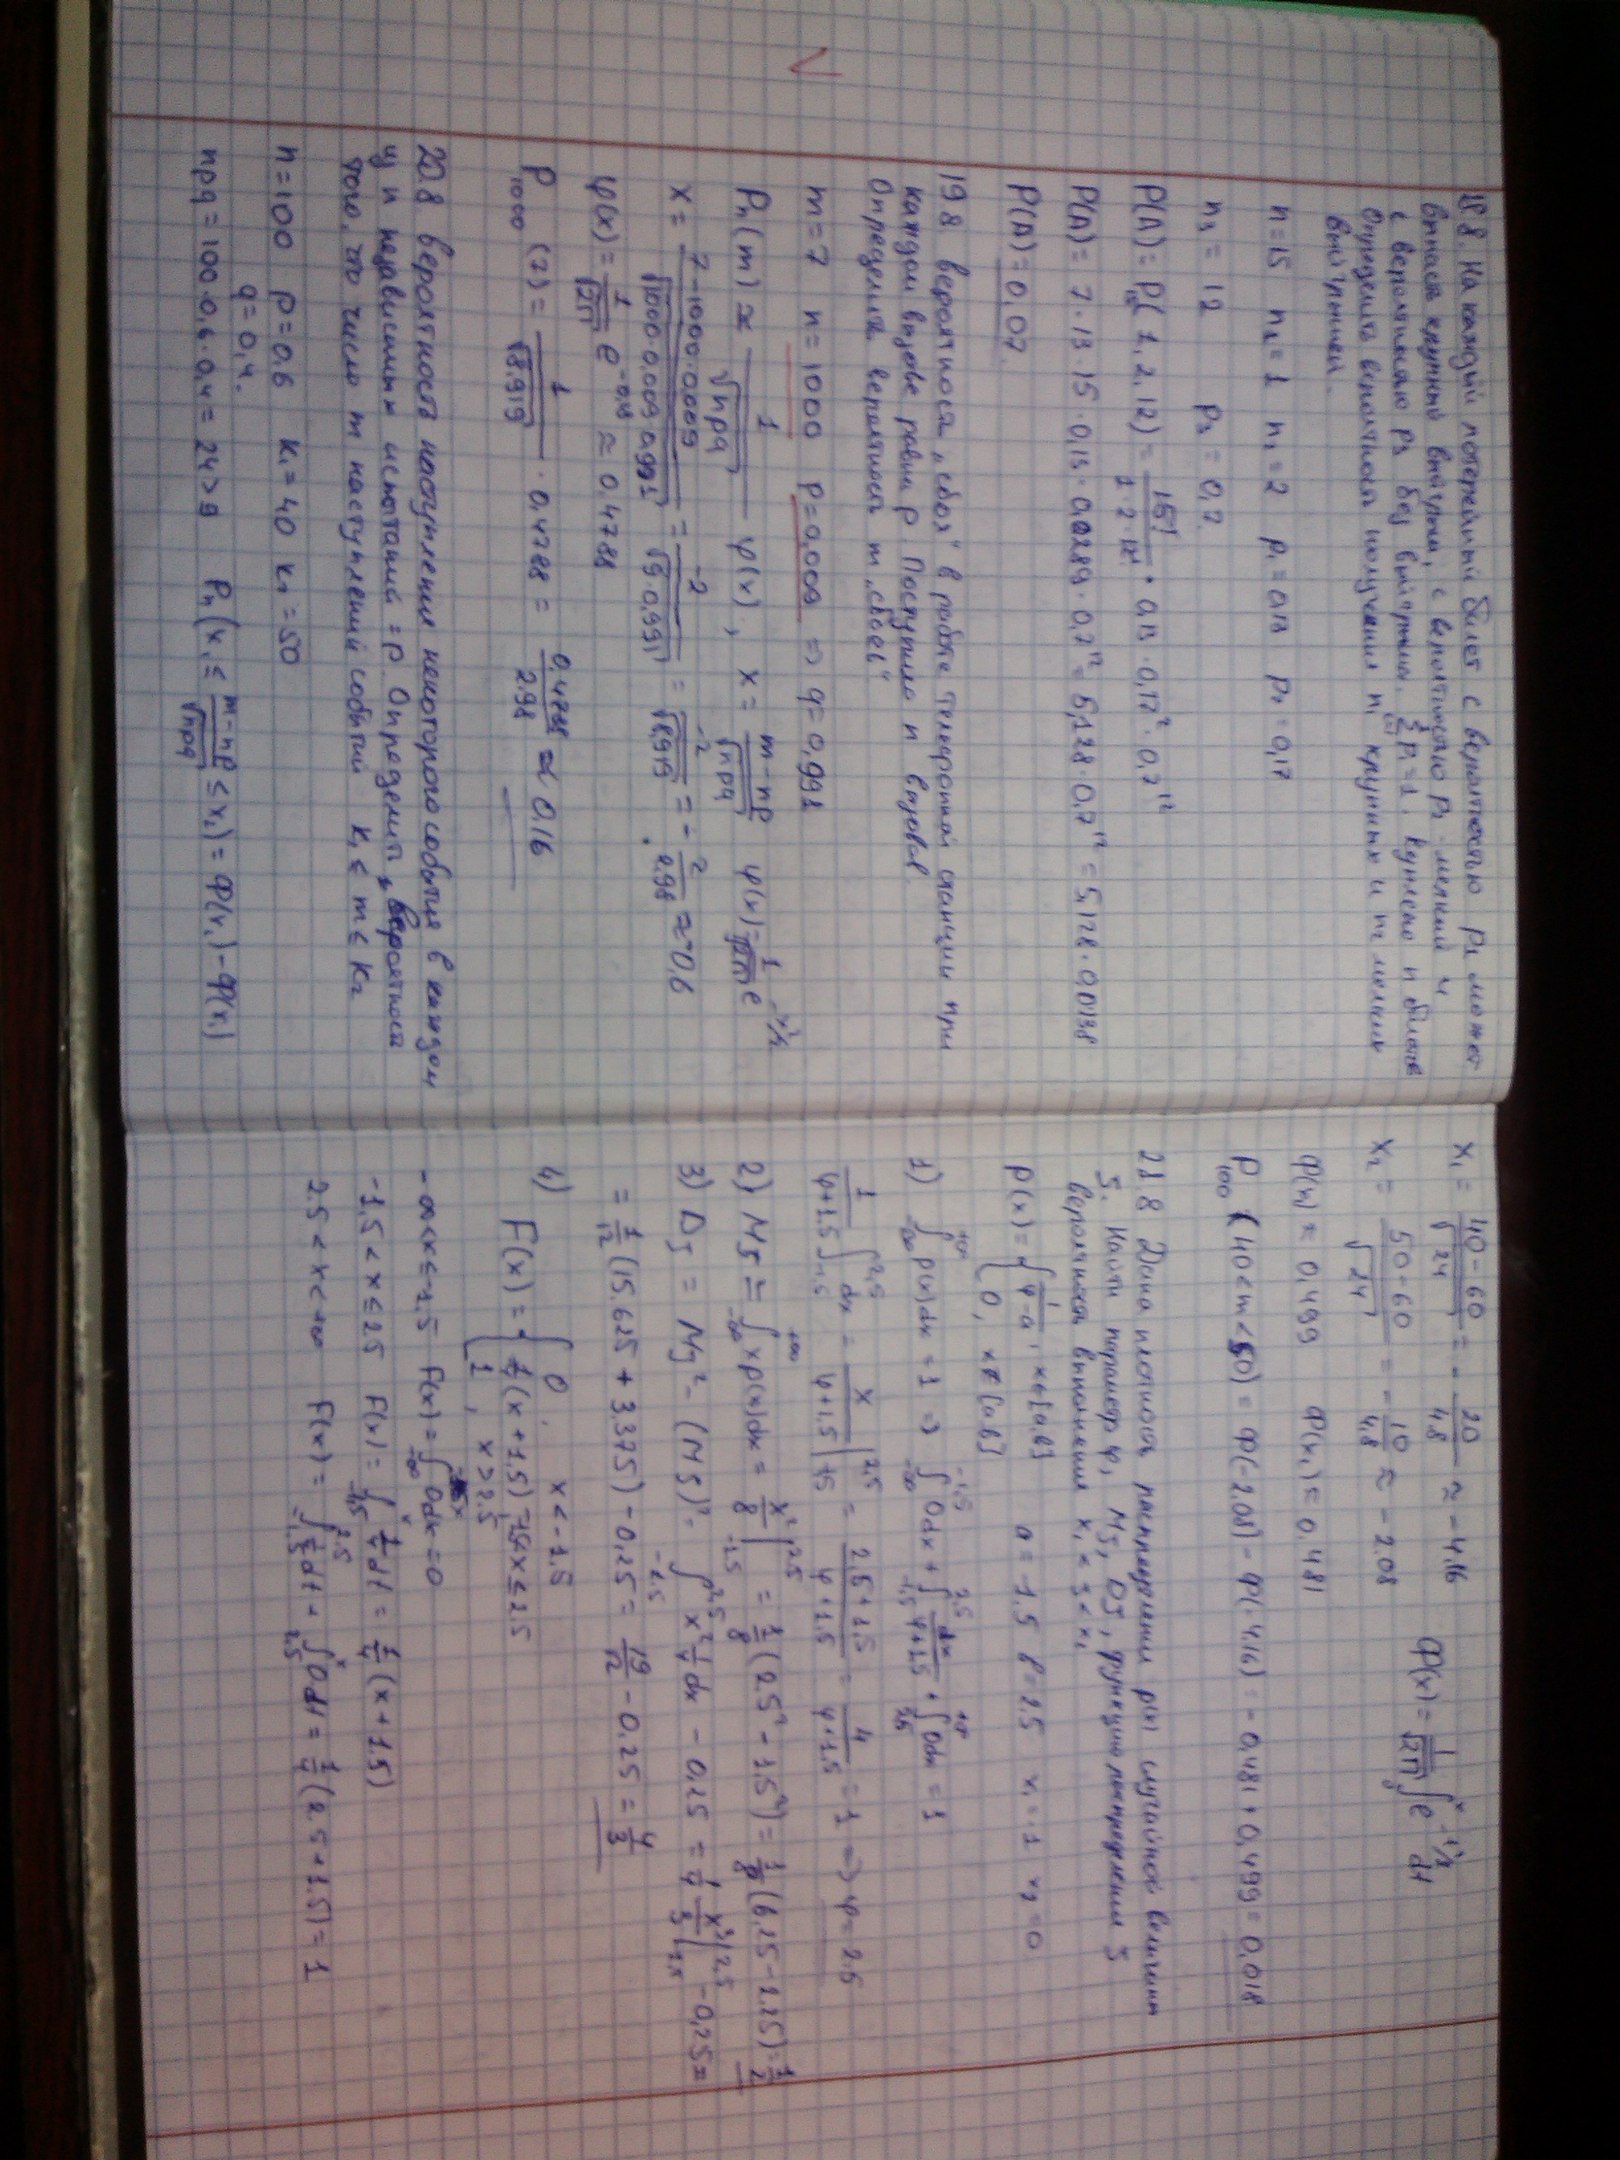 18.8. На каждый лотерейный билет с вероятностью p1 может
выпасть крупный выигрыш, с вероятностью p2 - мелкий и
с вероятностью p3 без выигрыша. Σ pi = 1. Куплено n билетов
Определить вероятность получения n1 крупных и n2 мелких
выигрышей.
n=15 n1=1 n2=2 p1=0,13 p2=0,17
n3 = 12 p3 = 0,7
P(A) = P15(1, 2, 12) = 15!/(1·2·12!) · 0,13 · 0,17² · 0,7¹²
P(A) = 7·13·15·0,13·0,0289·0,7¹² = 5,128·0,7¹² = 5,128·0,0138
P(A) = 0,07
19.8 вероятность „сбоя“ в работе телефонной станции при
каждом вызове равна p. Поступило n вызовов.
Определить вероятность m „сбоев“
m=7 n=1000 p=0,009 => q=0,991
Pn(m) ≈ 1/√npq φ(x), x = (m-np)/√npq φ(x) = 1/√2π e^(-x²/2)
x = (7-1000·0,009)/√(1000·0,009·0,991) = -2/√(9·0,991) = -2/√8,919 = - 2/2.98 ≈ -0,6
φ(x) = 1/√2π e^(-0,18) ≈ 0.4788
P1000(7) = 1/√8,919 · 0,4788 = 0,4788/2.98 ≈ 0,16
20.8. вероятность наступления некоторого события в каждом
из n независимых испытаний = p Определить вероятность
того, что число m наступлений событий k1 ≤ m ≤ k2
n=100 p=0,6 k1=40 k2=50
q=0,4.
npq = 100·0,6·0,4 = 24 > 9 Pn(x1 ≤ (m-np)/√npq ≤ x2) = Ф(x2) - Ф(x1)
x1 = (40-60)/√24 = - 20/4.8 ≈ -4.16 Ф(x) = 1/√2π ∫₀ˣ e^(-t²/2) dt
x2 = (50-60)/√24 = - 10/4,8 ≈ -2.08
Ф(x1) ≈ 0,499 Ф(x2) ≈ 0,481
P100(40<m<50) = Ф(-2.08) - Ф(-4.16) = -0,481 + 0,499 = 0,018
21.8 Дана плотность распределения p(x) случайной величины
ξ. Найти параметр φ, Mξ, Dξ, функцию распределения ξ
вероятность выполнения x1 < ξ < x2
p(x) = { 1/(φ-a), x∈[a,b] a = -1,5 b = 2,5 x1 = -1 x2 = 0
0, x∉[a,b]
1) ∫_{-∞}^{+∞} p(x)dx = 1 => ∫_{-∞}^{-1,5} 0dx + ∫_{-1,5}^{2,5} dx/(φ+1.5) + ∫_{2,5}^{+∞} 0dx = 1
1/(φ+1.5) ∫_{-1,5}^{2,5} dx = x/(φ+1.5) |_{-1,5}^{2,5} = (2,5+1,5)/(φ+1.5) = 4/(φ+1.5) = 1 => φ = 2.5
2) Mξ = ∫_{-∞}^{+∞} xp(x)dx = x²/8 |_{-1.5}^{2.5} = 1/8 (2.5² - 1.5²) = 1/8 (6,25 - 2.25) = 1/2
3) Dξ = Mξ² - (Mξ)² = ∫_{-1.5}^{2,5} x² 1/4 dx - 0,25 = 1/4 x³/3 |_{-1,5}^{2,5} - 0,25 =
= 1/12 (15.625 + 3.375) - 0,25 = 19/12 - 0.25 = 4/3
4) F(x) = { 0, x < -1.5
1/4 (x+1,5) -1,5<x≤2.5
1, x > 2.5
-∞<x≤-1,5 F(x) = ∫_{-∞}^{x} 0dx = 0
-1,5 < x ≤ 2,5 F(x) = ∫_{-1,5}^{x} 1/4 dt = 1/4 (x+1,5)
2.5 < x < +∞ F(x) = ∫_{-1.5}^{2.5} 1/4 dt + ∫_{2,5}^{x} 0dt = 1/4 (2.5+1.5) = 1